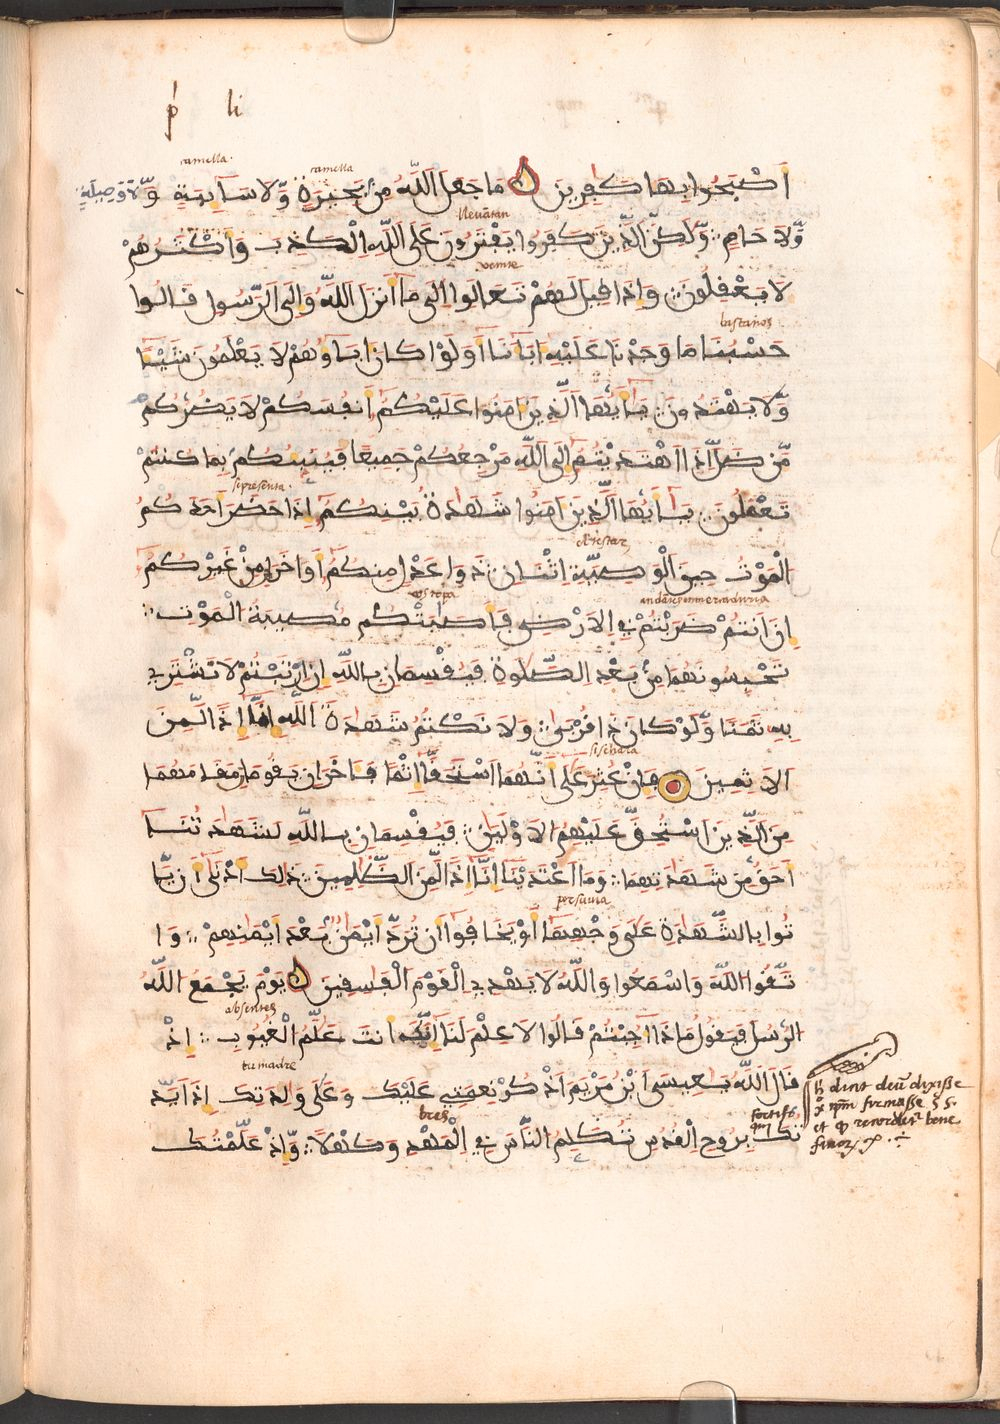 p li
camella. camella
اصبحوا بها كٰفرين ما جعل الله من بحيرة ولا سآئبة ولا وصيلة
Nevatan
ولا حام ولكن الذين كفروا يفترون على الله الكذب واكثرهم
venite
لا يعقلون واذا قيل لهم تعالوا الى ما انزل الله والى الرسول قالوا
bastanos
حسبنا ما وجدنا عليه ابآءنا اولو كان ابآوهم لا يعلمون شيئا
ولا يهتدون يٰأيها الذين امنوا عليكم انفسكم لا يضركم
من ضل اذا اهتديتم الى الله مرجعكم جميعا فينبيكم بما كنتم
sepresenta.
تعملون يٰأيها الذين امنوا شهٰدة بينكم اذا حضر احدكم
الموت حين الوصية اثنان ذوا عدل منكم او اخران من غيركم
os topa
ان انتم ضربتم في الارض فاصٰبتكم مصيبة الموت
تحبسونهما من بعد الصلوة فيقسمان بالله ان ارتبتم لا نشتري
به ثمنا ولو كان ذا قربى ولا نكتم شهٰدة الله انا اذا لمن
الاثمين فان عثر على انهما استحقا اثما فاخران يقومان مقامهما
من الذين استحق عليهم الاولين فيقسمان بالله لشهٰدتنا
احق من شهٰدتهما وما اعتدينا انا اذا لمن الظٰلمين ذلك ادنى ان يا
توا بالشهٰدة على وجهها او يخافوا ان ترد ايمٰن بعد ايمٰنهم وا
تقوا الله واسمعوا والله لا يهدي القوم الفٰسقين يوم يجمع الله
absentes
الرسل فيقول ماذا اجبتم قالوا لا علم لنا انك انت علٰم الغيوب اذ
tu madre
قال الله يٰعيسى ابن مريم اذكر نعمتي عليك وعلى ولدتك اذ ايد
تك بروح القدس تكلم الناس في المهد وكهلا واذ علمتك
dicit deũ dixisse
firmasse
et recordet bene